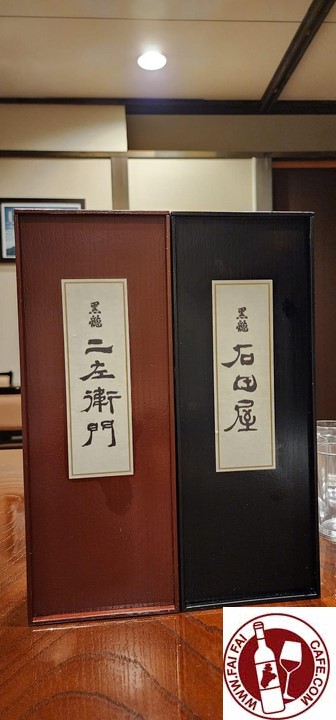 黒龍
二左衛門
黒龍
石田屋
WWW.FAIFAI
CAFE.COM